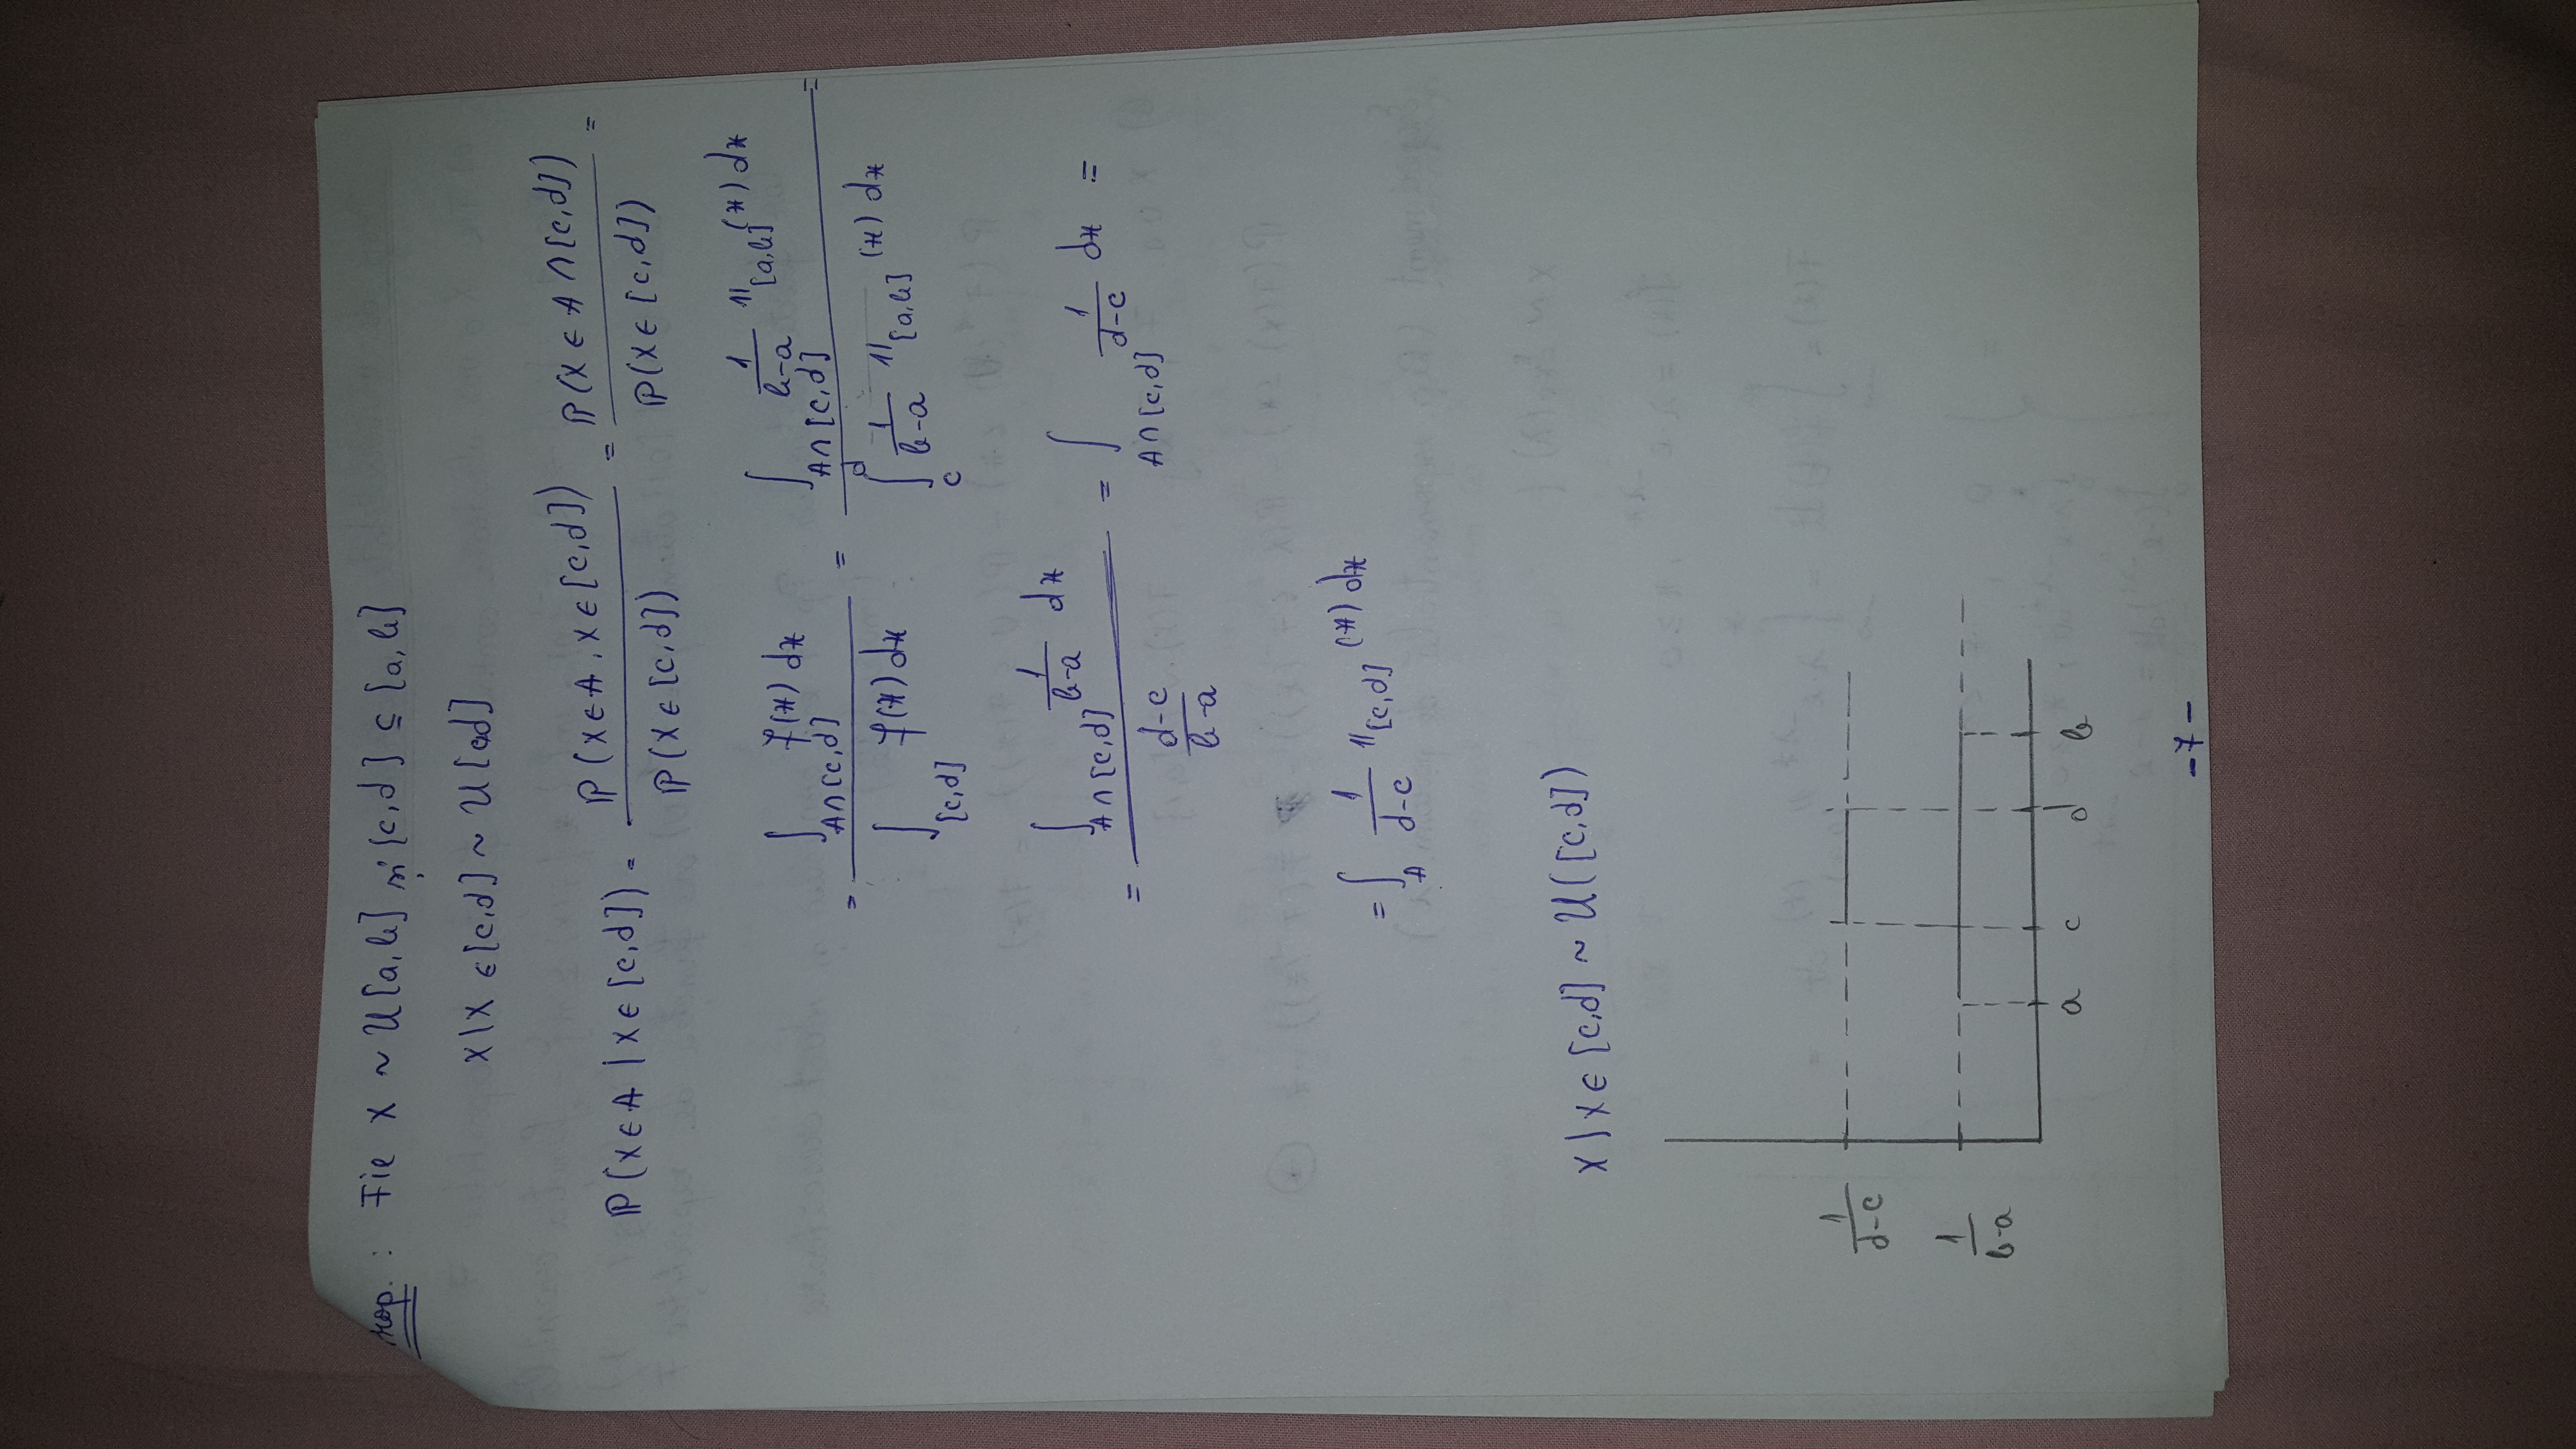 Prop. : Fie X ~ U[a,b] și [c,d] ⊆ [a,b]
X|X ∈ [c,d] ~ U[c,d]
ℙ(X∈A | X∈[c,d]) = ℙ(X∈A, X∈[c,d]) / ℙ(X∈[c,d]) = ℙ(X∈A∩[c,d]) / ℙ(X∈[c,d]) =
= ∫_{A∩[c,d]} f(x) dx / ∫_{[c,d]} f(x) dx = ∫_{A∩[c,d]} 1/(b-a) 𝟙_{[a,b]}(x) dx / ∫_c^d 1/(b-a) 𝟙_{[a,b]}(x) dx =
= ∫_{A∩[c,d]} 1/(b-a) dx / ((d-c)/(b-a)) = ∫_{A∩[c,d]} 1/(d-c) dx =
= ∫_A 1/(d-c) 𝟙_{[c,d]}(x) dx
X|X∈[c,d] ~ U([c,d])
1/(d-c)
1/(b-a)
a c d b
-7-